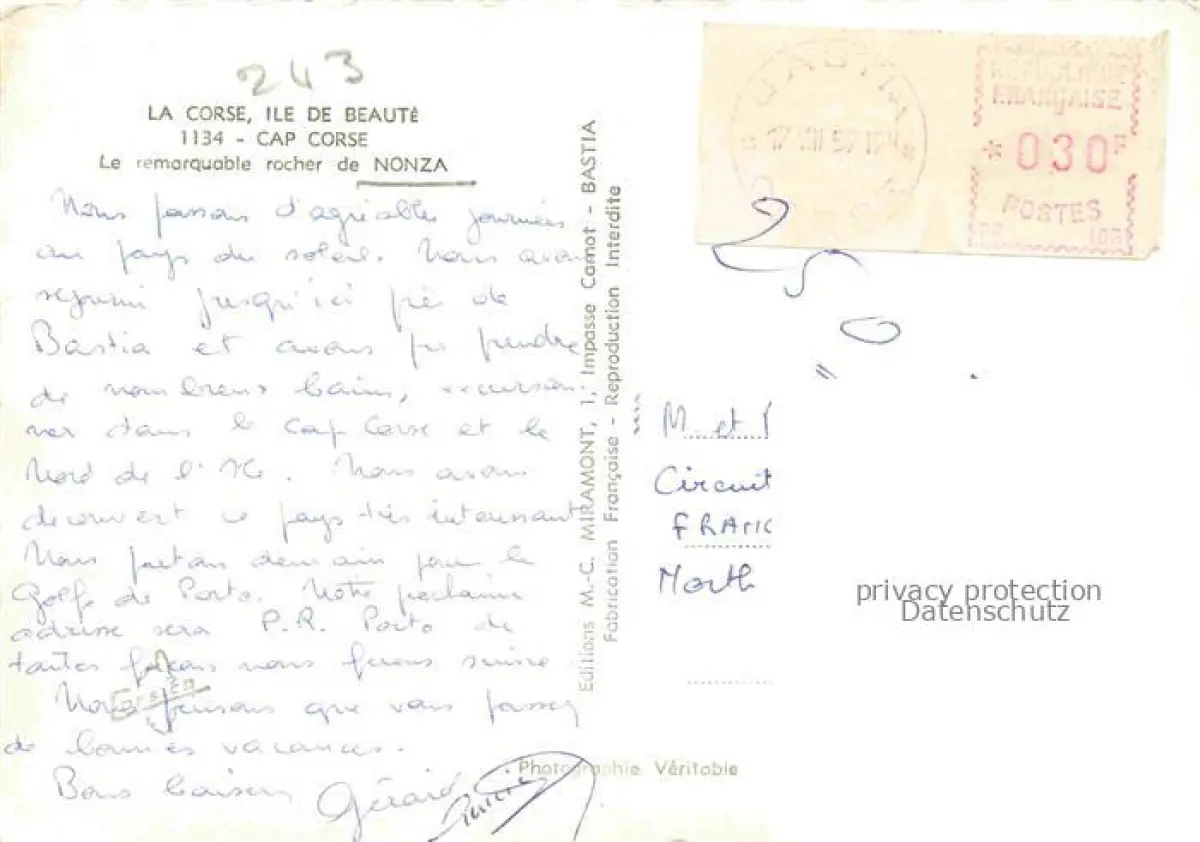 243
LA CORSE, ILE DE BEAUTÉ
1134 - CAP CORSE
Le remarquable rocher de NONZA
Nous passons d'agréables journées
au pays du soleil. Nous avons
séjourné jusqu'ici près de
Bastia et avons pu prendre
de nombreux bains, excursion-
ner dans le Cap Corse et le
Nord de l'Ile. Nous avons
découvert ce pays très intéressant
Nous partons demain pour le
Golfe de Porto. Notre prochaine
adresse sera P.R. Porto de
toutes façons nous ferons suivre
Nous pensons que vous passez
de bonnes vacances.
Bons baisers Gérard
Editions M.-C. MIRAMONT, 1, Impasse Carnot - BASTIA
Fabrication Française - Reproduction Interdite
Photographie Véritable
BASTIA
REPUBLIQUE
FRANÇAISE
* 030 F
POSTES
M. et
Circuit
FRANC
North
privacy protection
Datenschutz